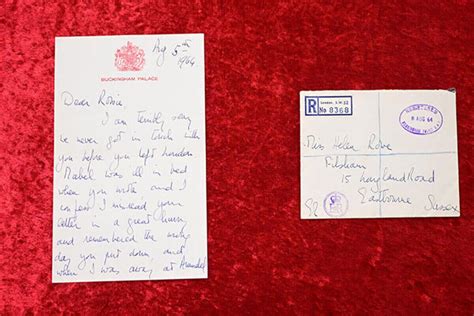 Aug 5th
1964
BUCKINGHAM PALACE
Dear Rosie
I am terribly sorry
we never got in touch with
you before you left London
Mabel was ill in bed
when you wrote and I
confess I misread your
letter in a great hurry
and remembered the wrong
day you put down and
when I was away at Arundel
R
London, S.W.1
No 8368
REGISTERED
5 AUG 64
Miss Helen Rowe
Filsham
15 Road
Eastbourne
Sussex